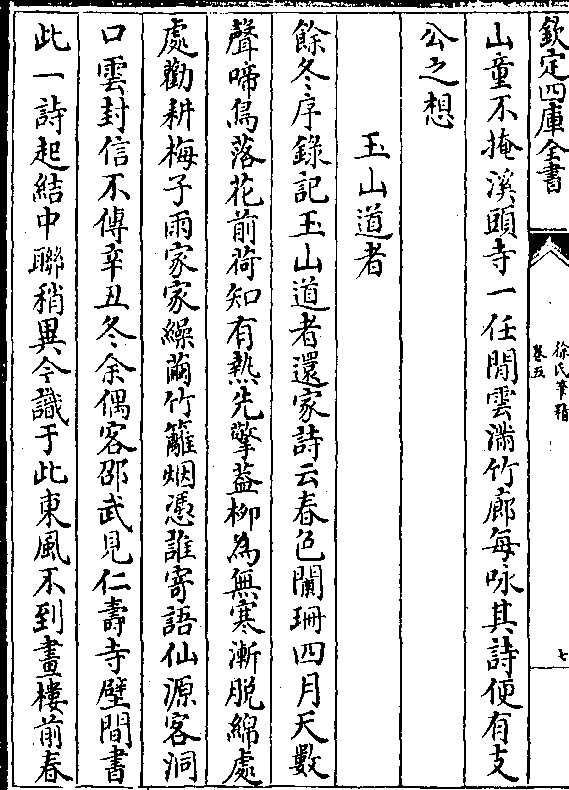 欽定四庫全書
徐氏筆精
卷五
七
山童不掩溪頭寺一任閒雲滿竹廊每咏其詩便有支
公之想
玉山道者
餘冬序錄記玉山道者還家詩云春色闌珊四月天數
聲啼鳥落花前荷知有熱先擎蓋柳為無寒漸脫綿處
處勸耕梅子雨家家繰繭竹籬烟憑誰寄語仙源客洞
口雲封信不傳辛丑冬余偶客邵武見仁壽寺壁間書
此一詩起結中聯稍異今識于此東風不到畫樓前春